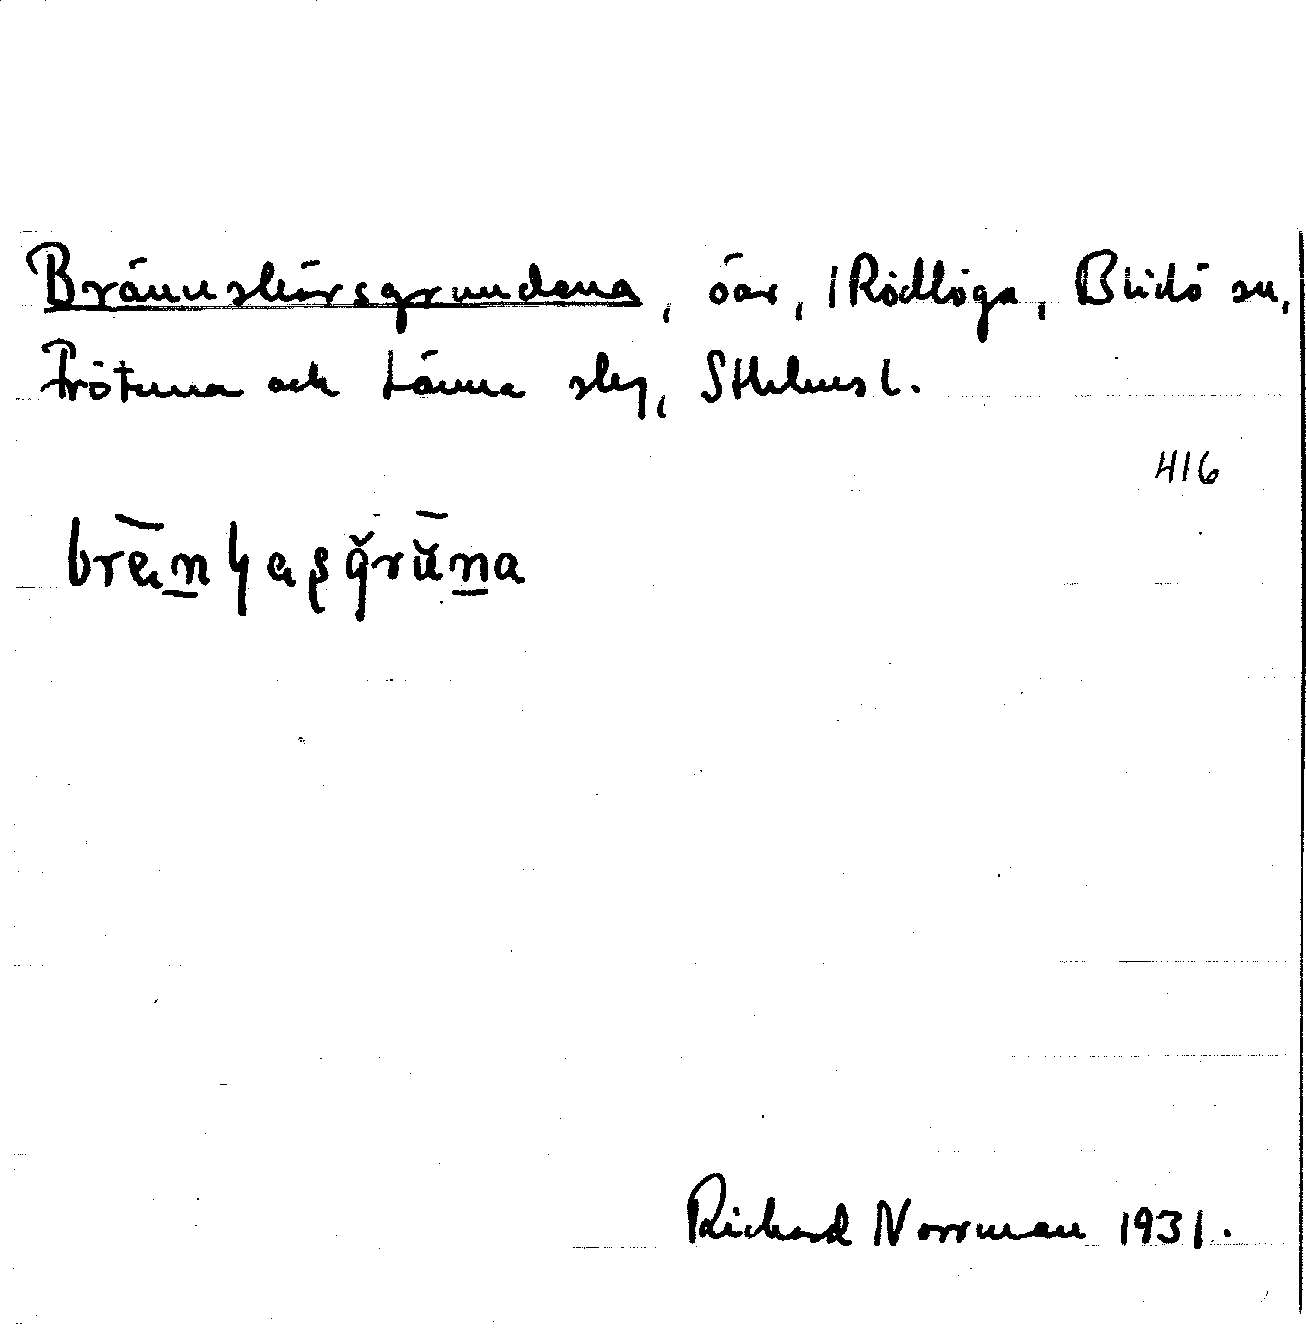 Brännskärsgrundena, öar, 1 Rödlöga, Blidö sn,
Frötuna och Länna slg, Sthlms l.
416
Richard Norrman 1931.